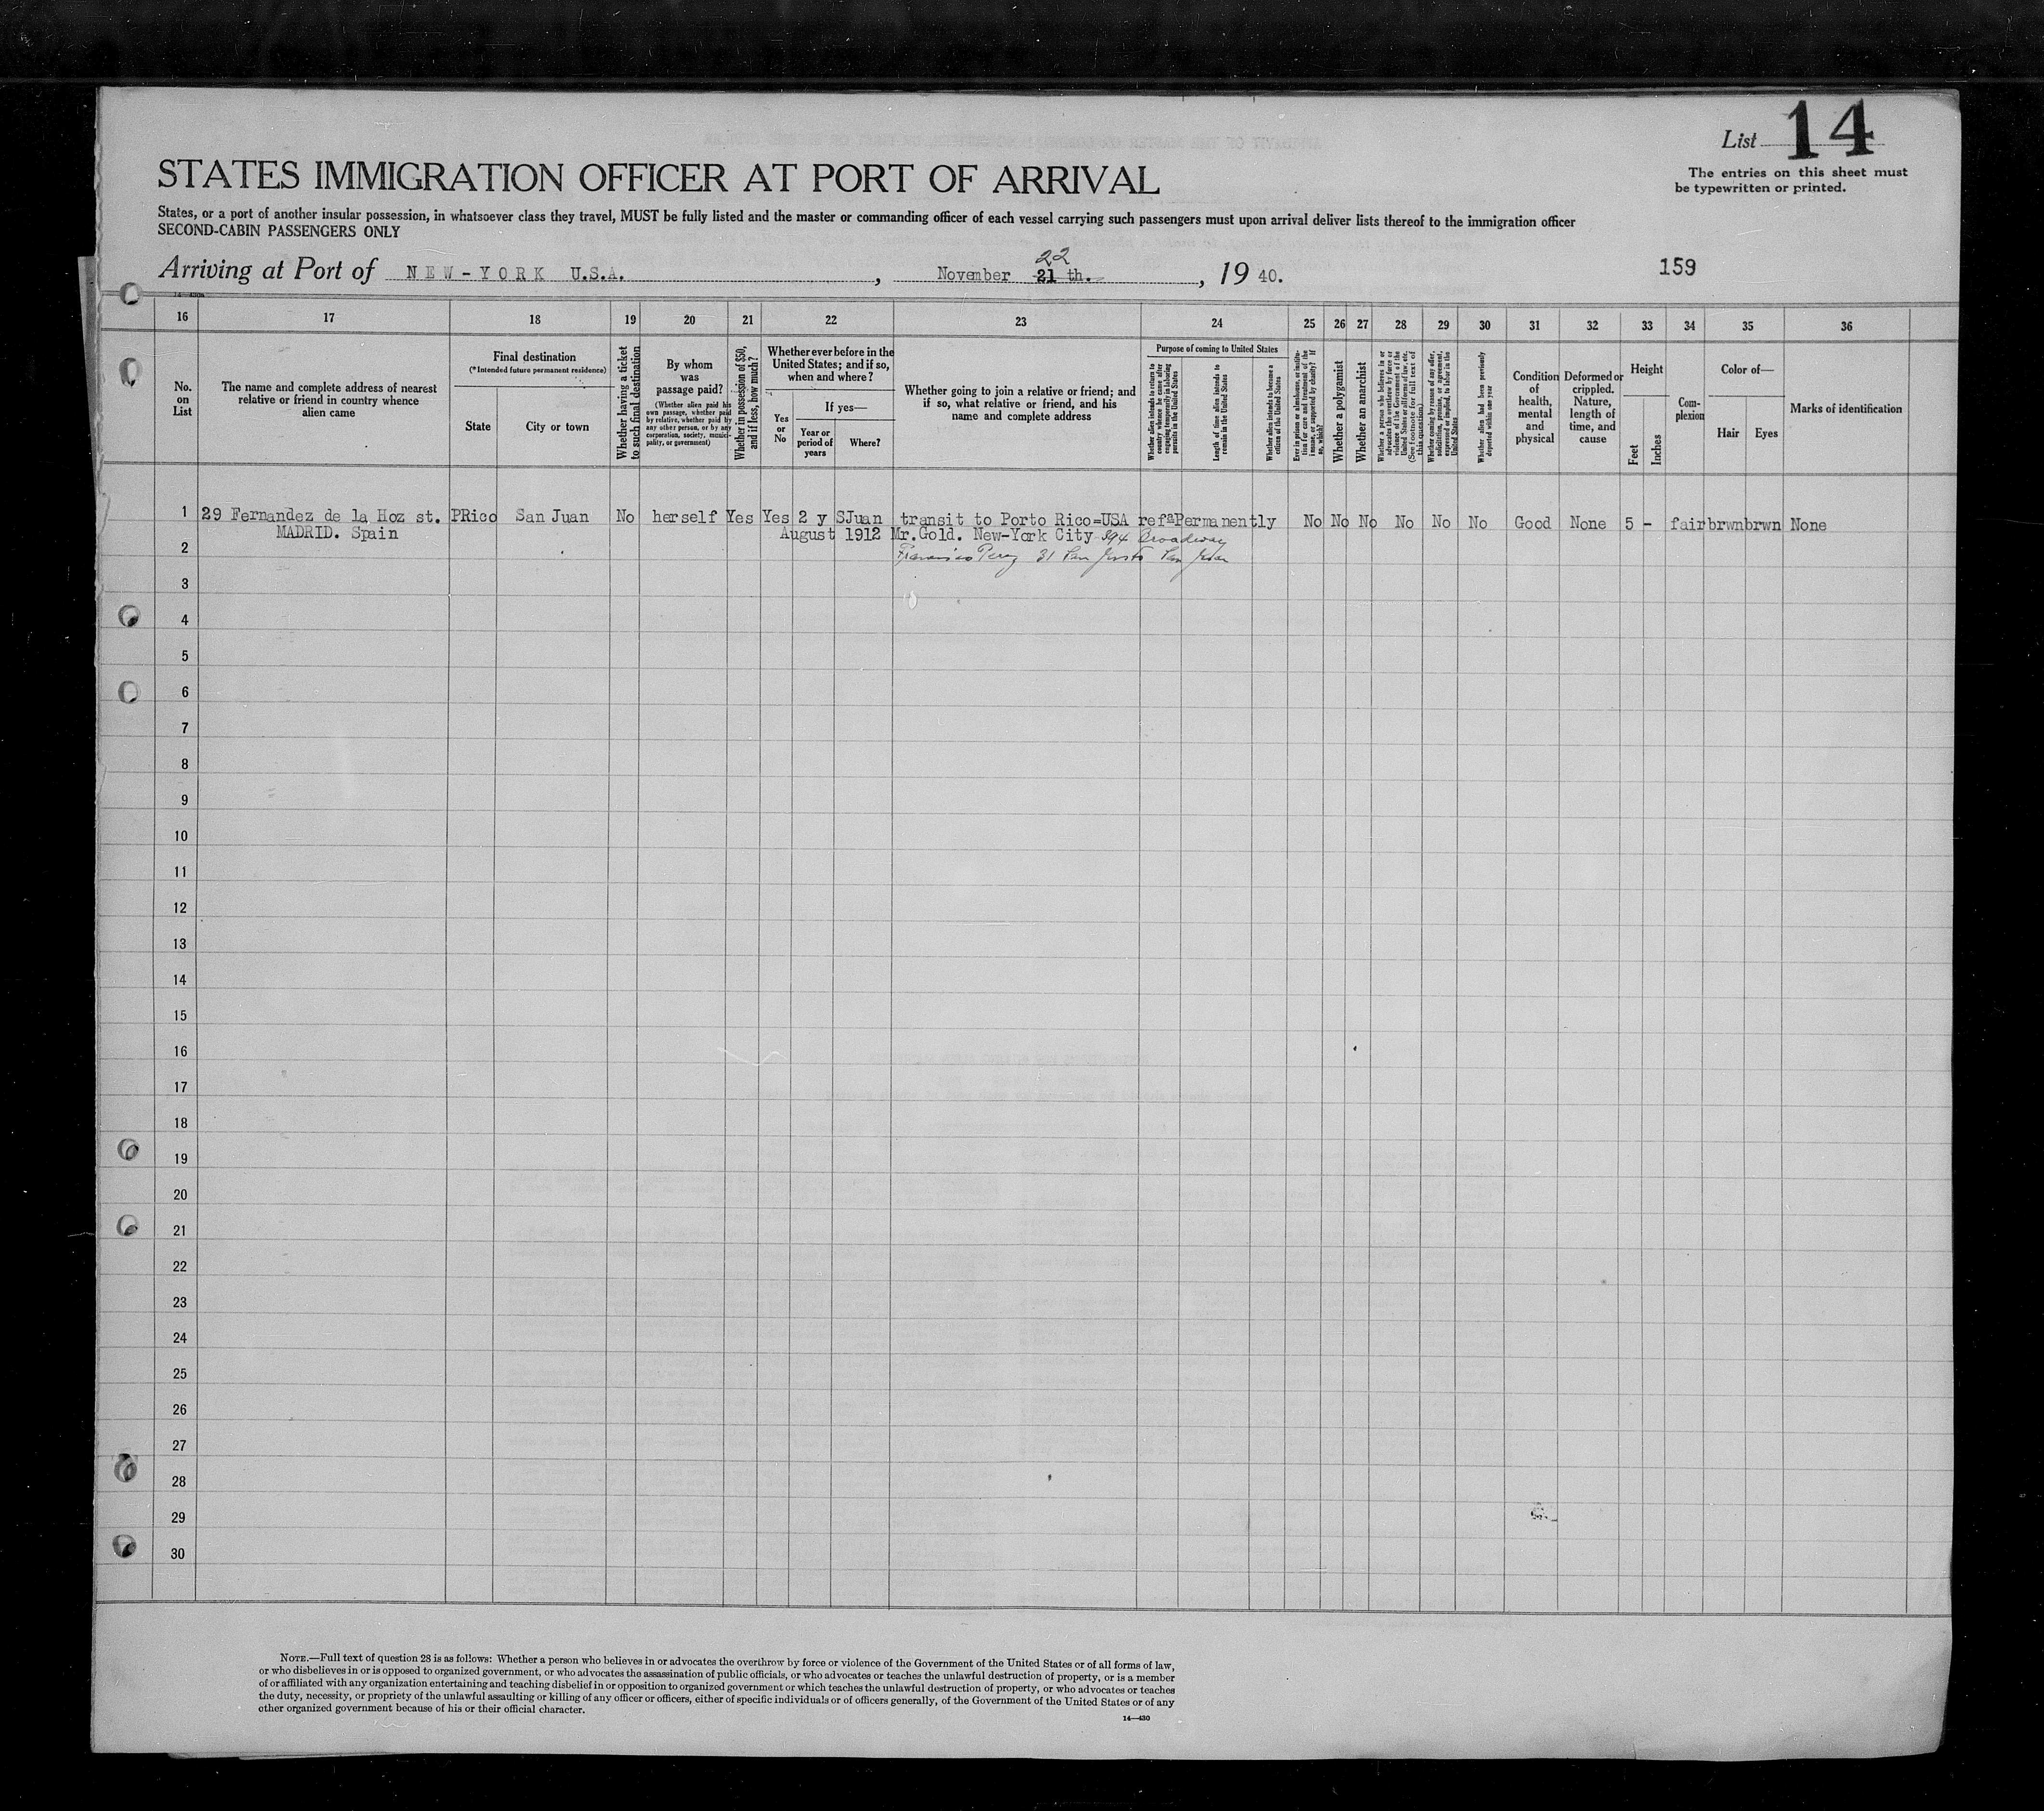 List 14
The entries on this sheet must
be typewritten or printed.
STATES IMMIGRATION OFFICER AT PORT OF ARRIVAL
States, or a port of another insular possession, in whatsoever class they travel, MUST be fully listed and the master or commanding officer of each vessel carrying such passengers must upon arrival deliver lists thereof to the immigration officer
SECOND-CABIN PASSENGERS ONLY
22
Arriving at Port of NEW-YORK U.S.A., November 21 th., 19 40.
159
16 17 18 19 20 21 22 23 24 25 26 27 28 29 30 31 32 33 34 35 36
No.
on
List
The name and complete address of nearest
relative or friend in country whence
alien came
Final destination
(*Intended future permanent residence)
State
City or town
Whether having a ticket
to such final destination
By whom
was
passage paid?
(Whether alien paid his
own passage, whether paid
by relative, whether paid by
any other person, or by any
corporation, society, munici-
pality, or government)
Whether in possession of $50,
and if less, how much?
Whether ever before in the
United States; and if so,
when and where?
Yes
or
No
If yes—
Year or
period of
years
Where?
Whether going to join a relative or friend; and
if so, what relative or friend, and his
name and complete address
Purpose of coming to United States
Whether alien intends to return to
country whence he came after
engaging temporarily in laboring
pursuits in the United States
Length of time alien intends to
remain in the United States
Whether alien intends to become a
citizen of the United States
Ever in prison or almshouse, or institu-
tion for care and treatment of the
insane, or supported by charity? If
so, which?
Whether a polygamist
Whether an anarchist
Whether a person who believes in or
advocates the overthrow by force or
violence of the Government of the
United States or all forms of law, etc.
(See footnote for full text of
this question)
Whether coming by reason of any offer,
solicitation, promise, or agreement,
expressed or implied, to labor in the
United States
Whether alien had been previously
deported within one year
Condition
of
health,
mental
and
physical
Deformed or
crippled.
Nature,
length of
time, and
cause
Height
Feet
Inches
Com-
plexion
Color of—
Hair
Eyes
Marks of identification
1 29 Fernandez de la Hoz st. PRico San Juan No herself Yes Yes 2 y SJuan transit to Porto Rico=USA refªPermanently No No No No No No Good None 5 - fair brwn brwn None
MADRID. Spain August 1912 Mr.Gold. New-York City 394 Broadway
2 Francisco Perez 31 San Justo San Juan
3
4
5
6
7
8
9
10
11
12
13
14
15
16
17
18
19
20
21
22
23
24
25
26
27
28
29
30
NOTE.—Full text of question 28 is as follows: Whether a person who believes in or advocates the overthrow by force or violence of the Government of the United States or of all forms of law,
or who disbelieves in or is opposed to organized government, or who advocates the assassination of public officials, or who advocates or teaches the unlawful destruction of property, or is a member
of or affiliated with any organization entertaining and teaching disbelief in or opposition to organized government or which teaches the unlawful destruction of property, or who advocates or teaches
the duty, necessity, or propriety of the unlawful assaulting or killing of any officer or officers, either of specific individuals or of officers generally, of the Government of the United States or of any
other organized government because of his or their official character.
14—430